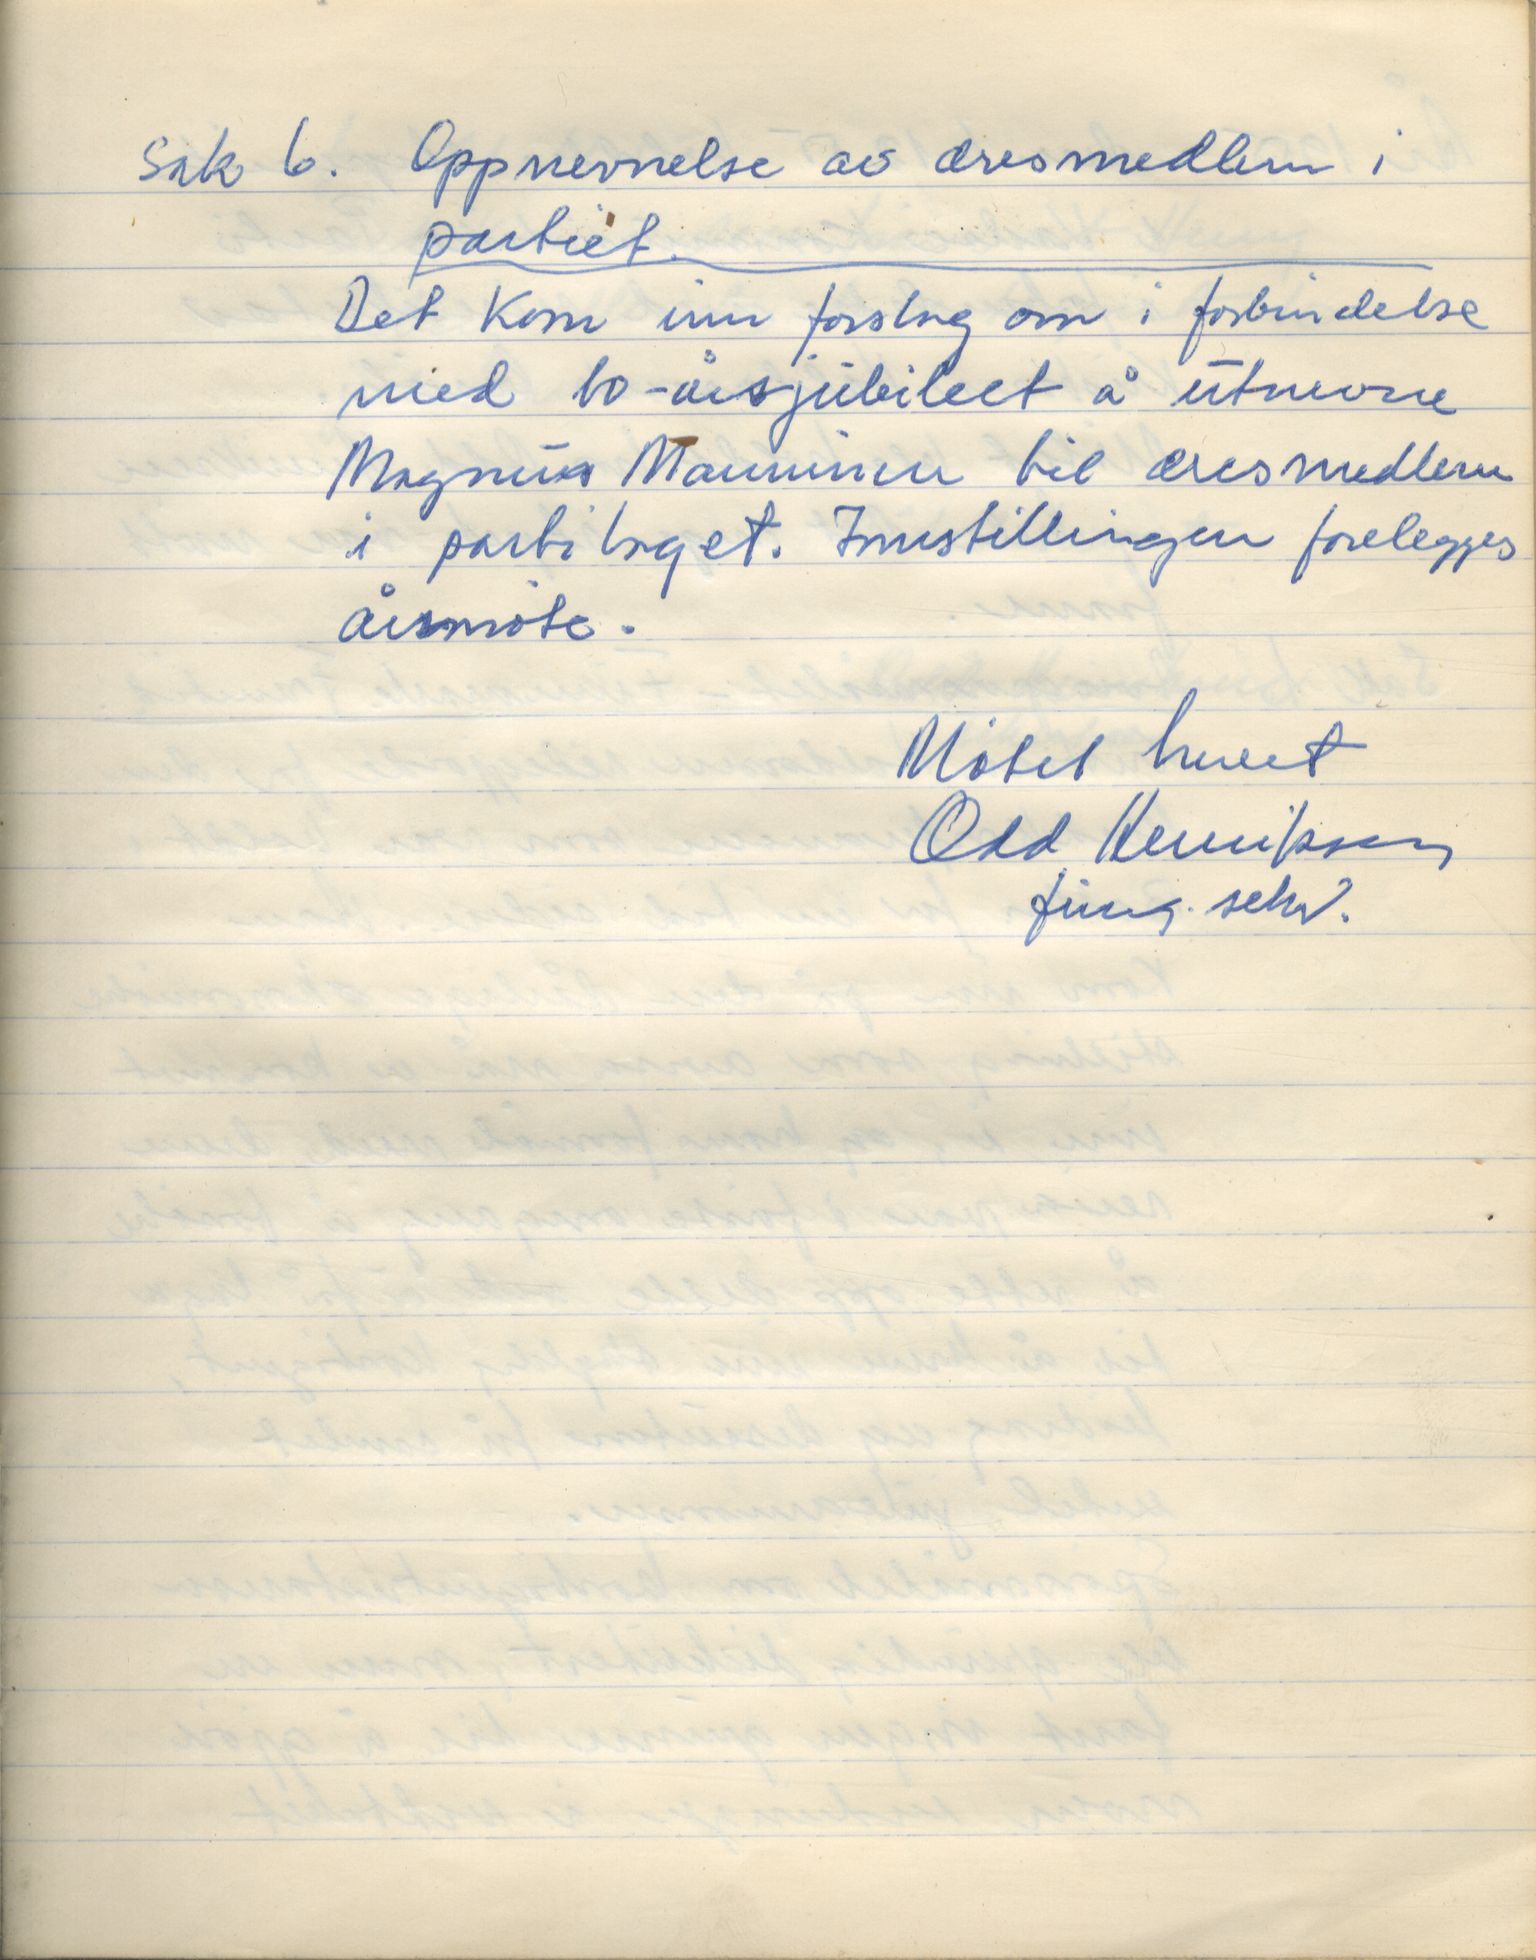 Sak 6. Oppnevnelse av æresmedlem i
partiet.
Det kom inn forslag om i forbindelse
med 60-årsjubileet å utnevne
Magnus Manninen til æresmedlem
i partilaget. Innstillingen forelegges
årsmøte.
Møtet hevet
Odd Henriksen
fung. sekr.